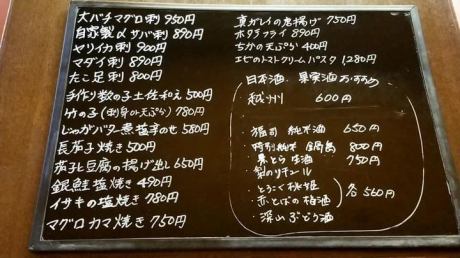 大バチマグロ刺 950円
自家製〆サバ刺 890円
ヤリイカ刺 900円
マダイ刺 890円
たこ足刺 800円
手作り数の子土佐和え 500円
竹の子(刺身or天ぷら) 780円
じゃがバター塩辛のせ 580円
長茄子焼き 500円
茄子と豆腐の揚げ出し 650円
銀鮭塩焼き 490円
イサキの塩焼き 780円
マグロカマ焼き 750円
真ガレイの唐揚げ 750円
ホタテフライ 890円
ちかの天ぷら 400円
エビのトマトクリームパスタ 1,280円
日本酒、果実酒おすすめ
越州 600円
純米酒 650円
特別純米 鍋島 800円
750円
梨のリキュール
とろこく桃姫
赤とんぼの梅酒
深山ぶどう酒
各560円